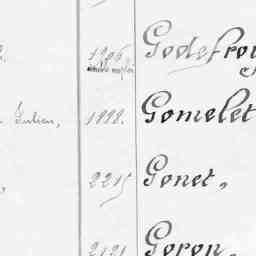 1906 Godefroy
Julien, 1888. Gomelet
2215 Gonet,
2121 Goron,